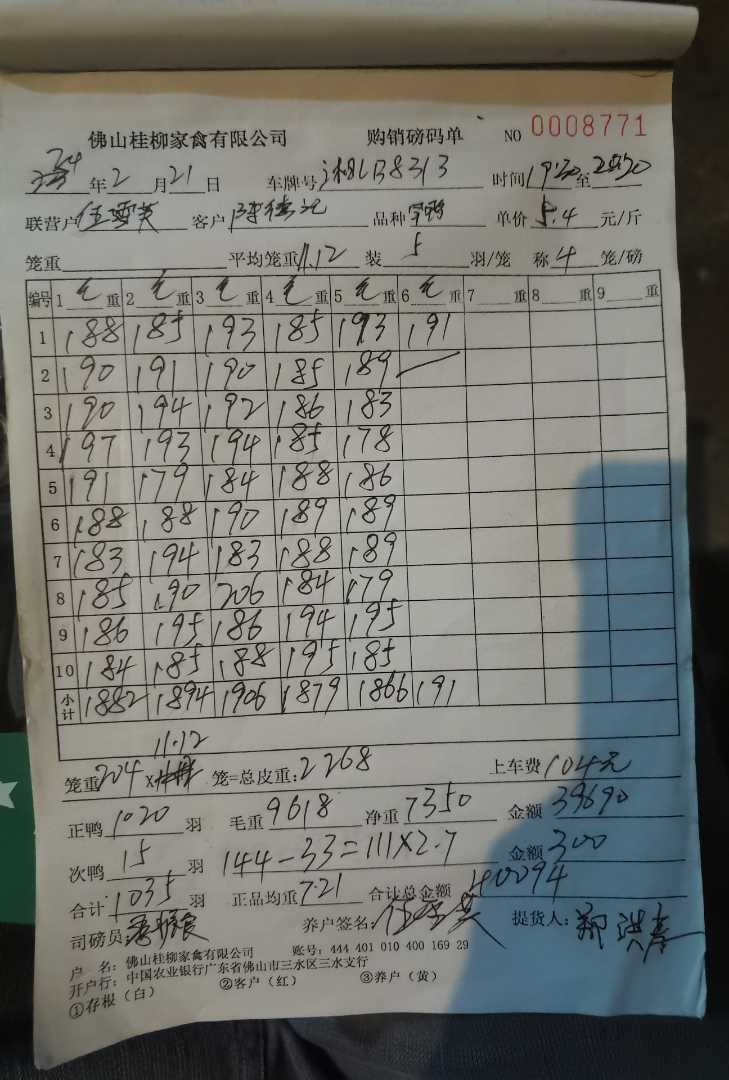 佛山桂柳家禽有限公司 购销磅码单 NO 0008771
年 2 月 21 日 车牌号 湘LB8313 时间 19:20 至
联营户 伍雪英 客户 品种 单价 5.4 元/斤
笼重 平均笼重 11.12 装 5 羽/笼 称 4 笼/磅
编号 1 毛 重 2 毛 重 3 毛 重 4 毛 重 5 毛 重 6 毛 重 7 重 8 重 9 重
1 188 185 193 185 193 191
2 190 191 190 185 189
3 190 194 192 186 183
4 197 193 194 185 178
5 191 179 184 188 186
6 188 188 190 189 189
7 183 194 183 188 189
8 185 190 206 184 179
9 186 195 186 194 195
10 184 185 188 195 185
小计 1882 1894 1906 1879 1866 191
11.12
笼重 204 × 笼=总皮重: 2268 上车费 104元
正鸭 1020 羽 毛重 9618 净重 7350 金额 39690
次鸭 15 羽 144-33=111×2.7 金额 300
合计 1035 羽 正品均重 7.21 合计总金额 40094
司磅员: 养户签名: 伍雪英 提货人:
户 名: 佛山桂柳家禽有限公司 账号: 444 401 010 400 169 29
开户行: 中国农业银行广东省佛山市三水区三水支行
①存根（白） ②客户（红） ③养户（黄）